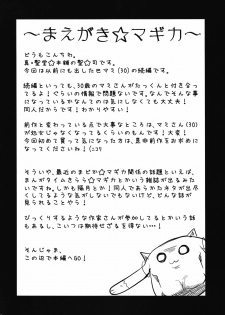 ～まえがき☆マギカ～
どうもこんちわ。
真・聖堂☆本舗の聖☆司です。
今回は以前にも出したセマミ(30)の続編です。
続編といっても、30歳のマミさんがたっくんと付き合ってるよ！ぐらいの情報で問題ないです。なんでそんな事になっているかなんてのは気にしなくても大丈夫！
同人だから！だいたいでいいです！
前作と変わっている点で大事なところは、マミさん(30)が処女じゃなくなってるくらいいのもんです！大変！
もし今回初めて買って気になった方は、是非前作もお求めになってくださいね！(ニコッ
そういや、最近のまどか☆マギカ関係の話題といえば、まんがタイムきらら☆マギカとかいう雑誌が出るみたいですね。しかも隔月とか！同人であらかたネタが出尽くしてるような気がしないでもないけど、どんな話が見られることやら！
びっくりするような作家さんが参加してるとかいう話もあるし、こいつは期待せざるを得ない…！
そんじゃま、
この辺で本編へGO！